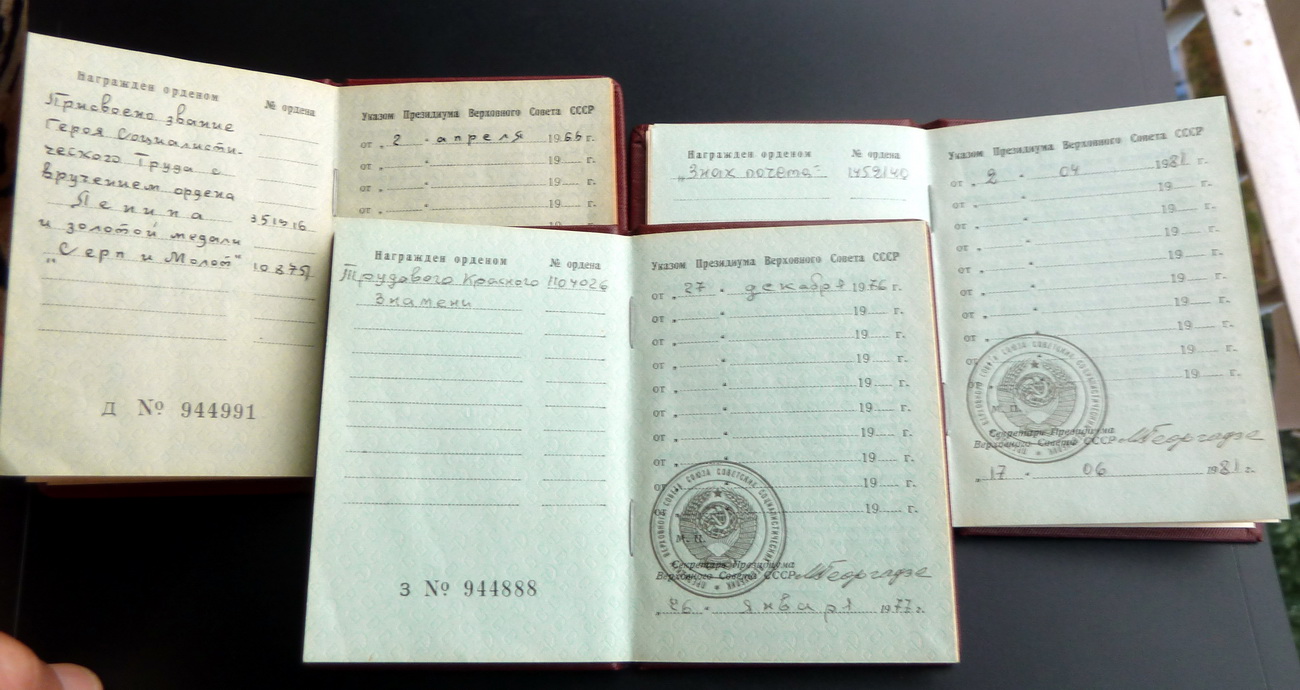 Награжден орденом № ордена
Присвоено звание
Героя Социалисти-
ческого Труда с
вручением ордена
Ленина
и золотой медали
"Серп и Молот"
Д № 944991
Указом Президиума Верховного Совета СССР
от „ 2 " апреля 1966 г.
от „ " 19 г.
от „ " 19 г.
от „ " 19 г.
Награжден орденом № ордена
„Знак почета"
Указом Президиума Верховного Совета СССР
от „ 2 " 04 1981 г.
от „ " 19 г.
от „ " 19 г.
от „ " 19 г.
от „ " 19 г.
от „ " 19 г.
от „ " 19 г.
от „ " 19 г.
от „ " 19 г.
М. П.
Секретарь Президиума
Верховного Совета СССР МГеоргадзе
„ 17 " 06 1981 г.
Награжден орденом № ордена
Трудового Красного 1104026
Знамени
З № 944888
Указом Президиума Верховного Совета СССР
от „ 27 " декабря 1976 г.
от „ " 19 г.
от „ " 19 г.
от „ " 19 г.
от „ " 19 г.
от „ " 19 г.
от „ " 19 г.
от „ " 19 г.
от „ " 19 г.
от „ " 19 г.
М. П.
Секретарь Президиума
Верховного Совета СССР МГеоргадзе
„ 26 " января 1977 г.